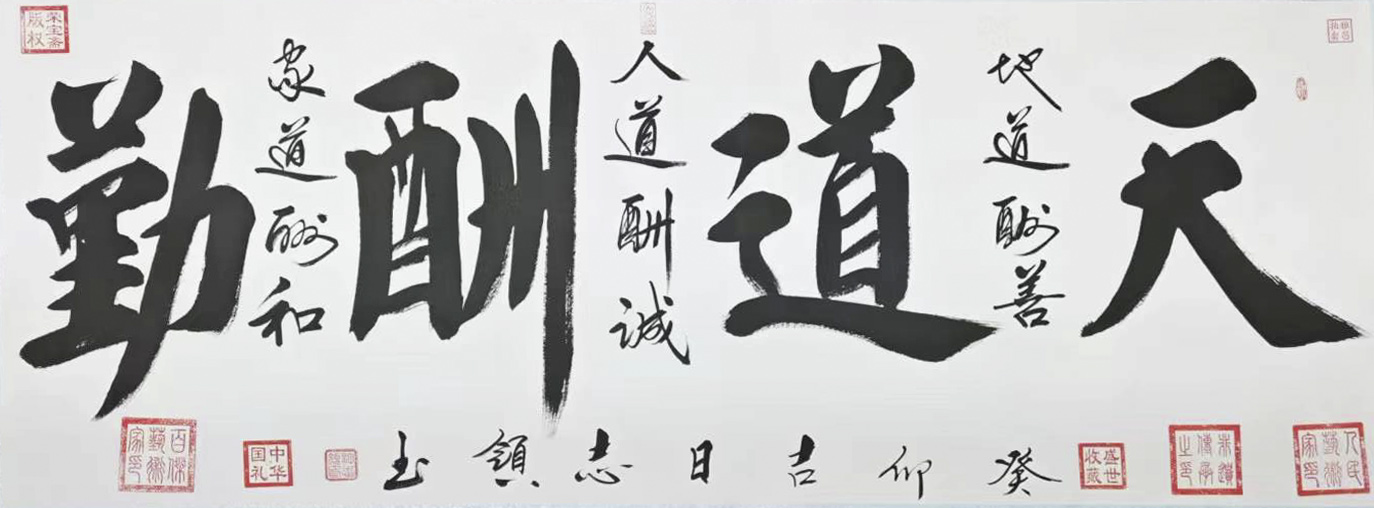 天
地道酬善
道
人道酬诚
酬
家道酬和
勤
癸卯吉日志領
人民藝術家印
盛世收藏
中华国礼
百傑藝術家印
荣宝斋版权